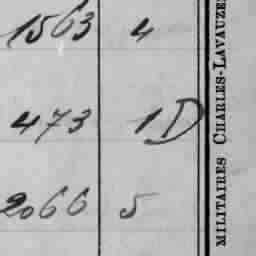 1563 4
473 1D
2066 5
MILITAIRES CHARLES-LAVAUZE